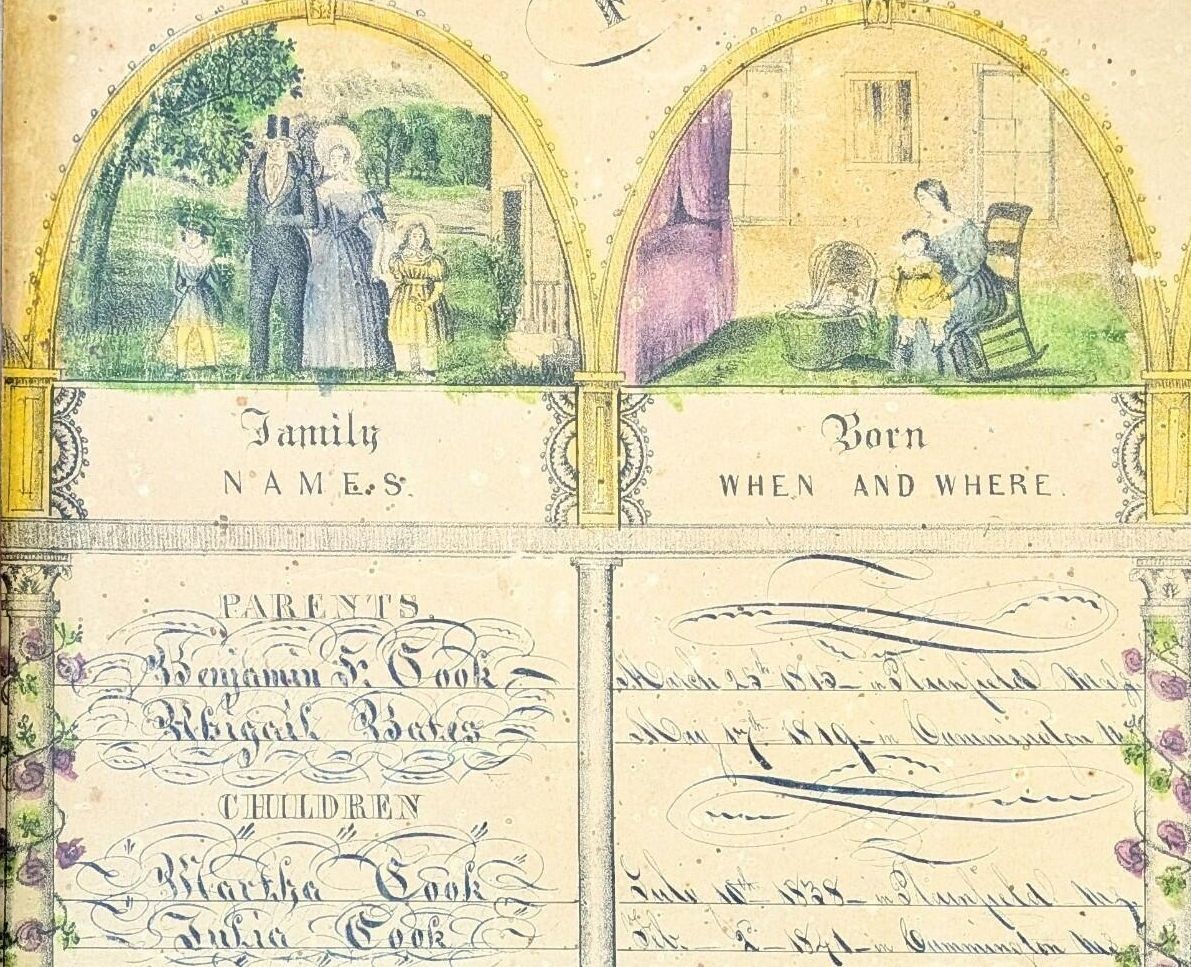 Family
NAMES.
Born
WHEN AND WHERE.
PARENTS.
Benjamin F. Cook
March 25th in Plainfield
Abigail Bates
May 17th 1819 – in Cummington
CHILDREN
Martha Cook
July 10th 1838 – in Plainfield
Julia Cook
Feb. 2 – in Cummington